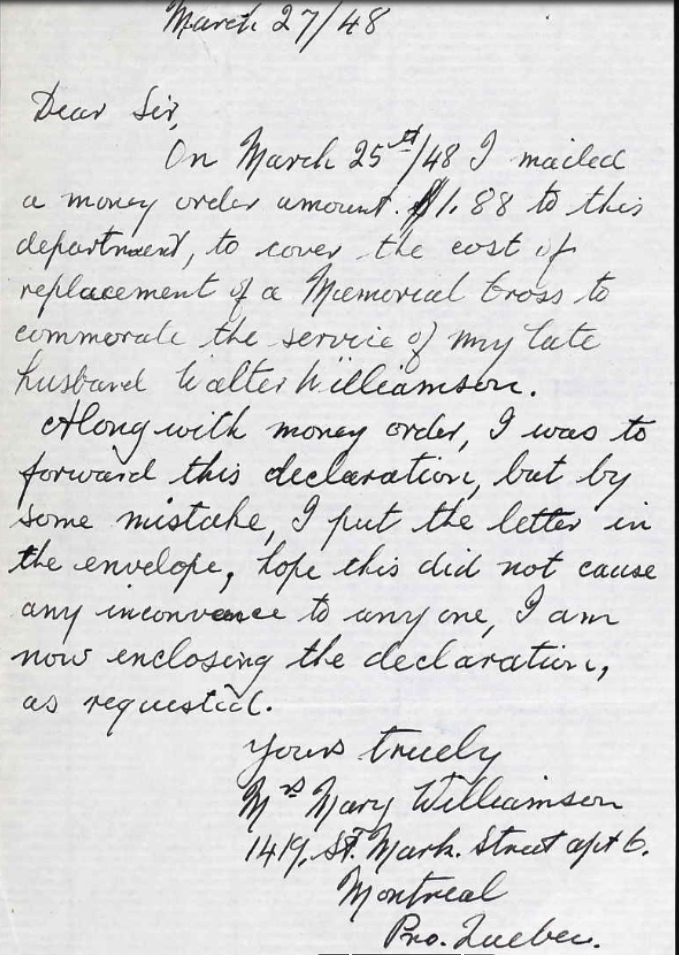 March 27/48
Dear Sir,
On March 25th/48 I mailed
a money order amount. $1.88 to this
department, to cover the cost of
replacement of a Memorial Cross to
commorate the service of my late
husband Walter Williamson.
Along with money order, I was to
forward this declaration, but by
some mistake, I put the letter in
the envelope, hope this did not cause
any inconvence to any one, I am
now enclosing the declaration,
as requested.
Yours truely
Mrs Mary Williamson
1419, St. Mark. Street apt 6.
Montreal
Pro. Quebec.